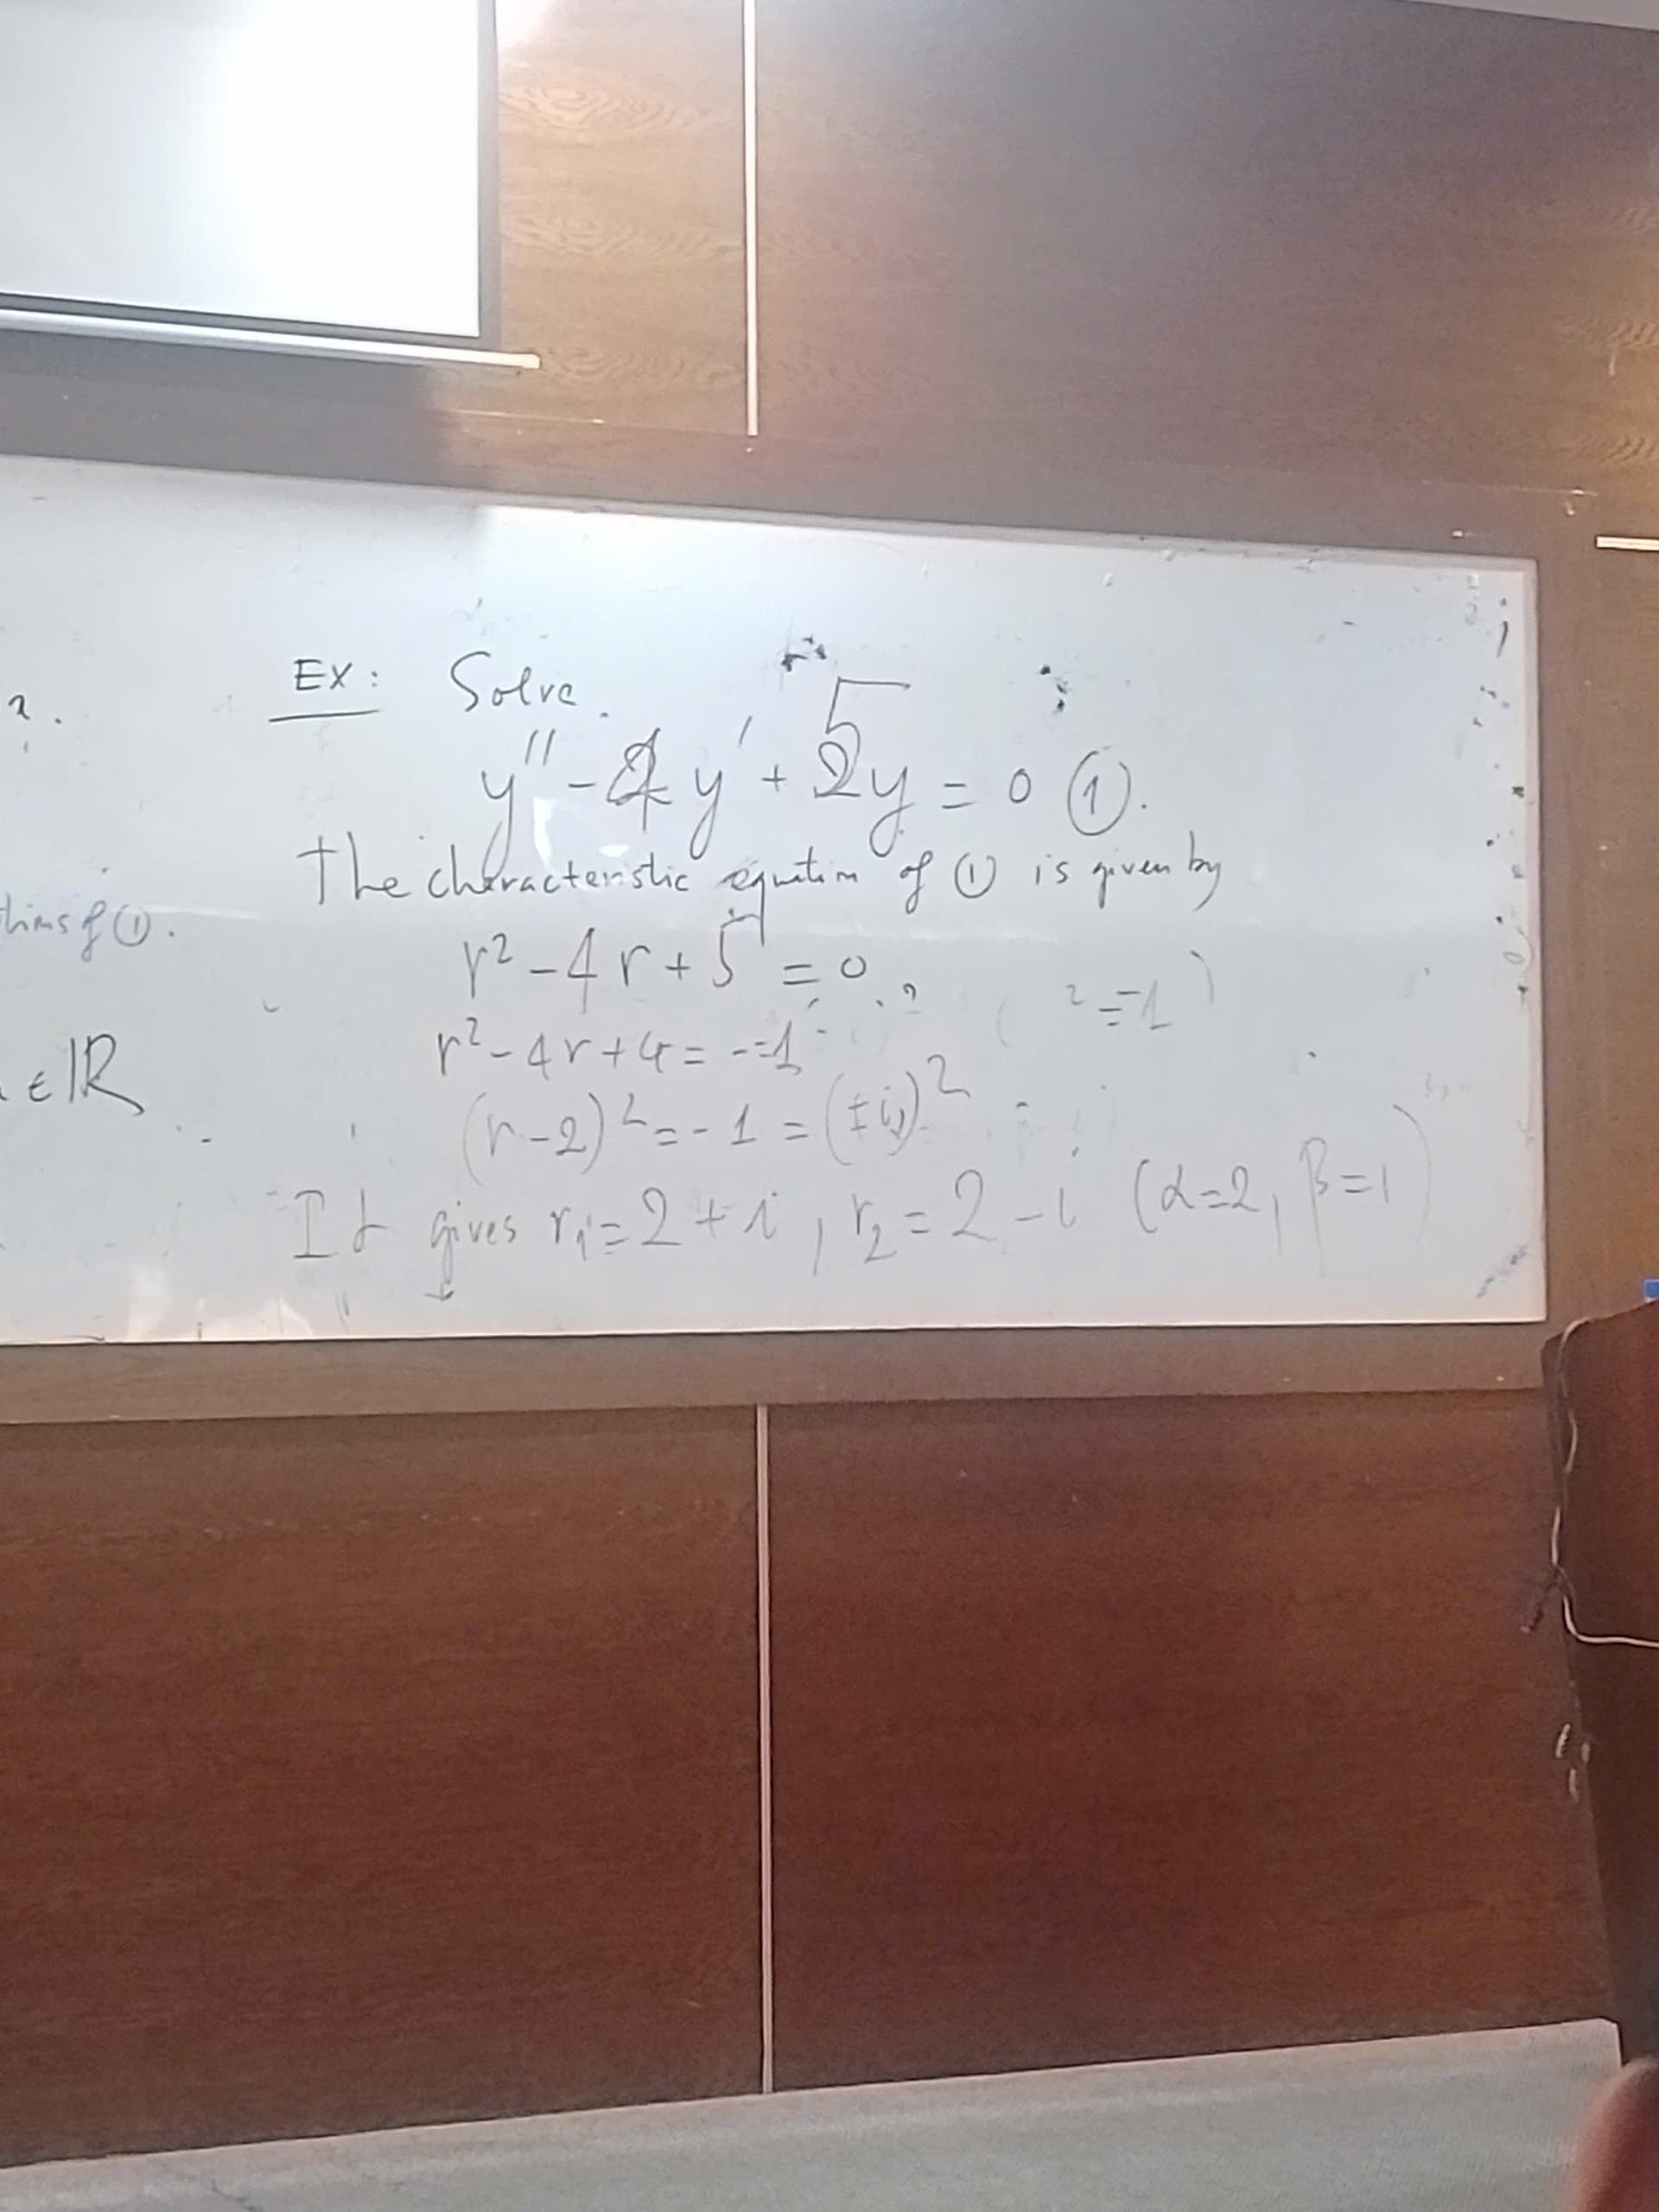 EX: Solve
y'' - 4y' + 5y = 0 ①.
The characteristic equation of ① is given by
r² - 4r + 5 = 0
r² - 4r + 4 = -1
(² = -1)
(r-2)² = -1 = (±i)²
It gives r₁ = 2 + i, r₂ = 2 - i (α=2, β=1)
of ①.
∈ ℝ